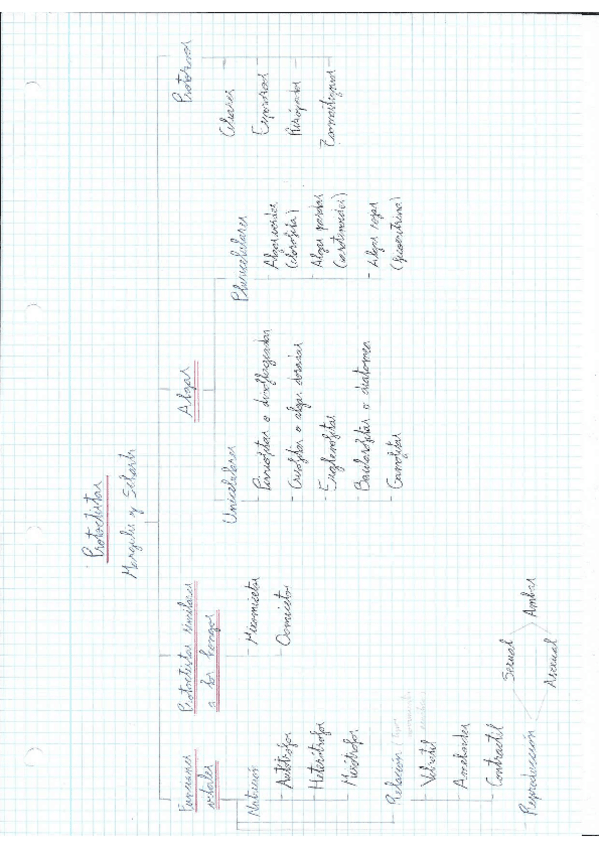 Protoctistas
Margulis y Schartz
Funciones
vitales
Nutrición
- Autótrofos
- Heterótrofos
- Mixótrofos
- Relación
- Vibrátil
- Ameboides
- Contráctil
- Reproducción
Sexual
Asexual
Ambas
Protoctistas similares
a los hongos
- Mixomicetos
- Oomicetos
Algas
Unicelulares
- Pirrofitas o dinoflageladas
- Crisofitas o algas doradas
- Euglenofitas
- Bacilariofitas o diatomeas
- Carofitas
Pluricelulares
- Algas verdes
(clorofila)
- Algas pardas
(carotenoides)
- Algas rojas
(ficoeritrina)
Protozoos
Ciliares
Esporozoos
Rizópodos
Zoomastiginos